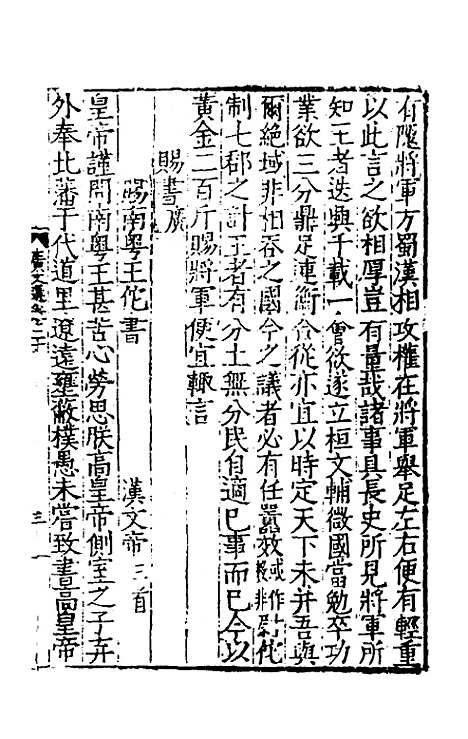 有隗將軍方蜀漢相攻權在將軍舉足左右便有輕重
以此言之欲相厚豈有量哉諸事具長史所見將軍所
知王者迭興千載一會欲遂立桓文輔微國當勉卒功
業欲三分鼎足連衡合從亦宜以時定天下未并吾與
爾絶域非相吞之國今之議者必有任囂效尉佗
制七郡之計王者有分土無分民自適己事而已今以
黃金二百斤賜將軍便宜輒言
賜書廣
賜南粤王佗書 漢文帝三首
皇帝謹問南粤王甚苦心勞思朕高皇帝側室之子弃
外奉北藩于代道里遼遠壅蔽樸愚未嘗致書高皇帝
廣文選卷之二十
三